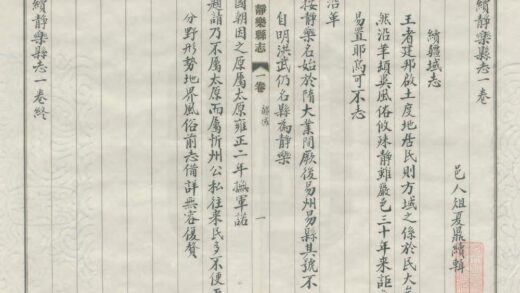 續靜樂縣志一卷
邑人俎夏鼎續輯
續疆域志
王者建邦啟土度地居民則方域之係於民大矣
然沿革頻異風俗攸殊靜雖嚴邑三十年來詎
易置耶焉可不志
沿革
按靜樂名始於隋大業間厥後易州易縣其號不
自明洪武仍名縣為靜樂
靜樂縣志 一卷 一
國朝因之原屬太原雍正二年撫軍諾
題請乃不屬太原而屬忻州公私往來民多不便
分野形勢地界風俗前志備詳無容復贅
續靜樂縣志一卷終